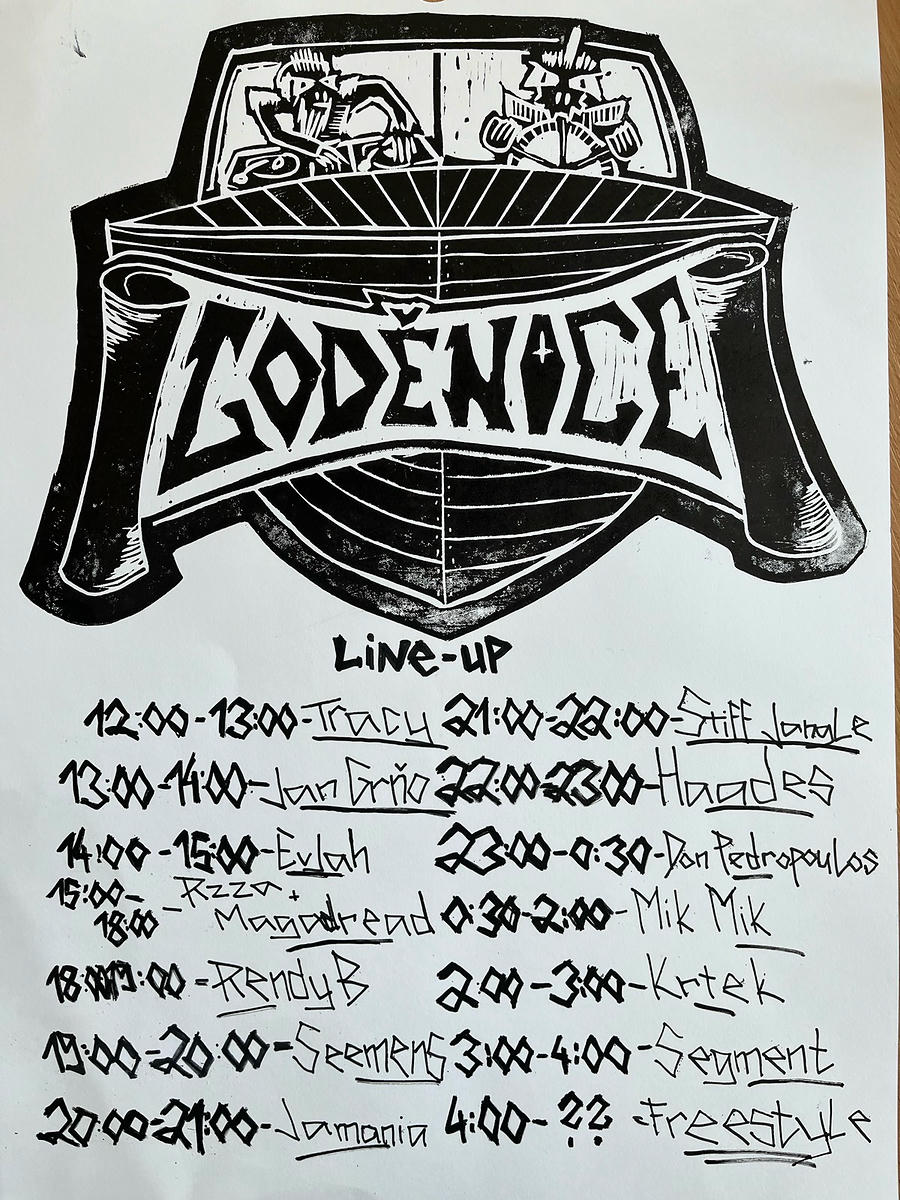 LODĚNICE
LINE-UP
12:00-13:00-Tracy
13:00-14:00-Jan Grňo
14:00-15:00-Evlah
15:00-18:00-Rzza + Magadread
18:00-19:00-RendyB
19:00-20:00-Seemens
20:00-21:00-Jamania
21:00-22:00-Stiff Jangle
22:00-23:00-Haades
23:00-0:30-Don Pedropoulos
0:30-2:00-Mik Mik
2:00-3:00-Krtek
3:00-4:00-Segment
4:00-??-Freestyle